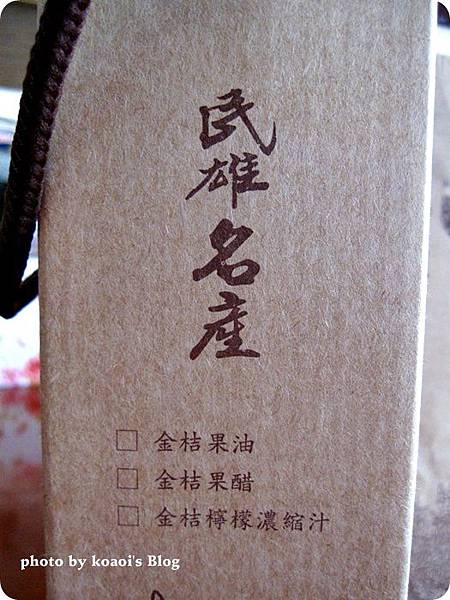 民雄名產
□ 金桔果油
□ 金桔果醋
□ 金桔檸檬濃縮汁
photo by koaoi's Blog